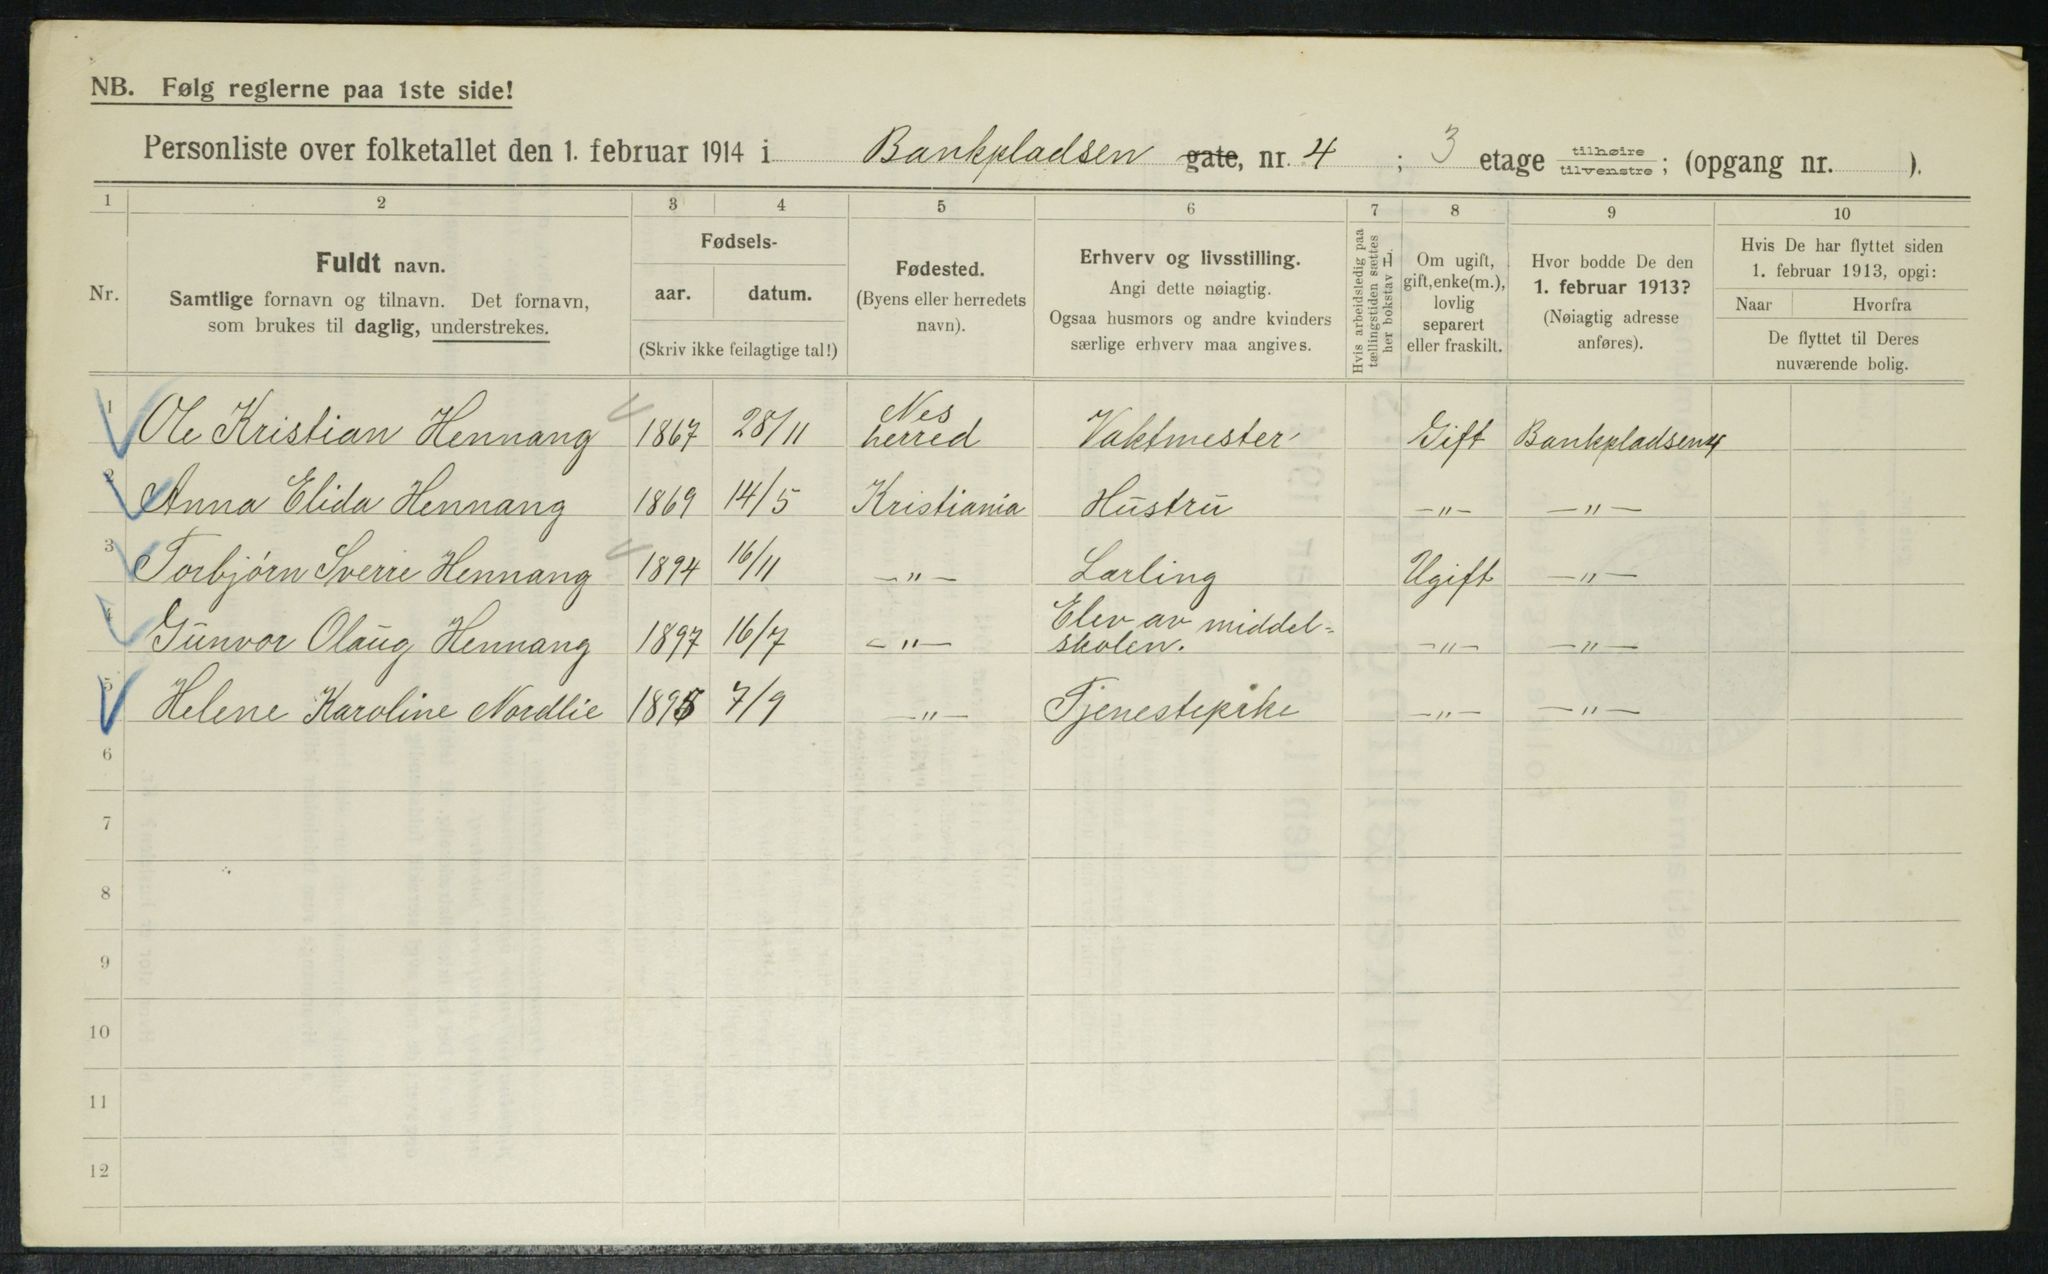 NB. Følg reglerne paa 1ste side!
Personliste over folketallet den 1. februar 1914 i Bankpladsen gate, nr. 4 ; 3 etage tilhøire tilvenstre ; (opgang nr. ).
1 2 3 4 5 6 7 8 9 10
Nr.
Fuldt navn.
Samtlige fornavn og tilnavn. Det fornavn,
som brukes til daglig, understrekes.
Fødsels-
aar. datum.
(Skriv ikke feilagtige tal!)
Fødested.
(Byens eller herredets
navn).
Erhverv og livsstilling.
Angi dette nøiagtig.
Ogsaa husmors og andre kvinders
særlige erhverv maa angives.
Hvis arbeidsledig paa
tællingstiden sættes
her bokstav L.
Om ugift,
gift, enke(m.),
lovlig
separert
eller fraskilt.
Hvor bodde De den
1. februar 1913?
(Nøiagtig adresse
anføres).
Hvis De har flyttet siden
1. februar 1913, opgi:
Naar Hvorfra
De flyttet til Deres
nuværende bolig.
1 Ole Kristian Hennang 1867 28/11 Nes herred Vaktmester Gift Bankpladsen 4
2 Anna Elida Hennang 1869 14/5 Kristiania Hustru —"— —"—
3 Torbjørn Sverre Hennang 1894 16/11 —"— Lærling Ugift —"—
4 Gunvor Olaug Hennang 1897 16/7 —"— Elev av middel=
skolen. —"— —"—
5 Helene Karoline Nordlie 1895 7/9 —"— Tjenestepike —"— —"—
6
7
8
9
10
11
12